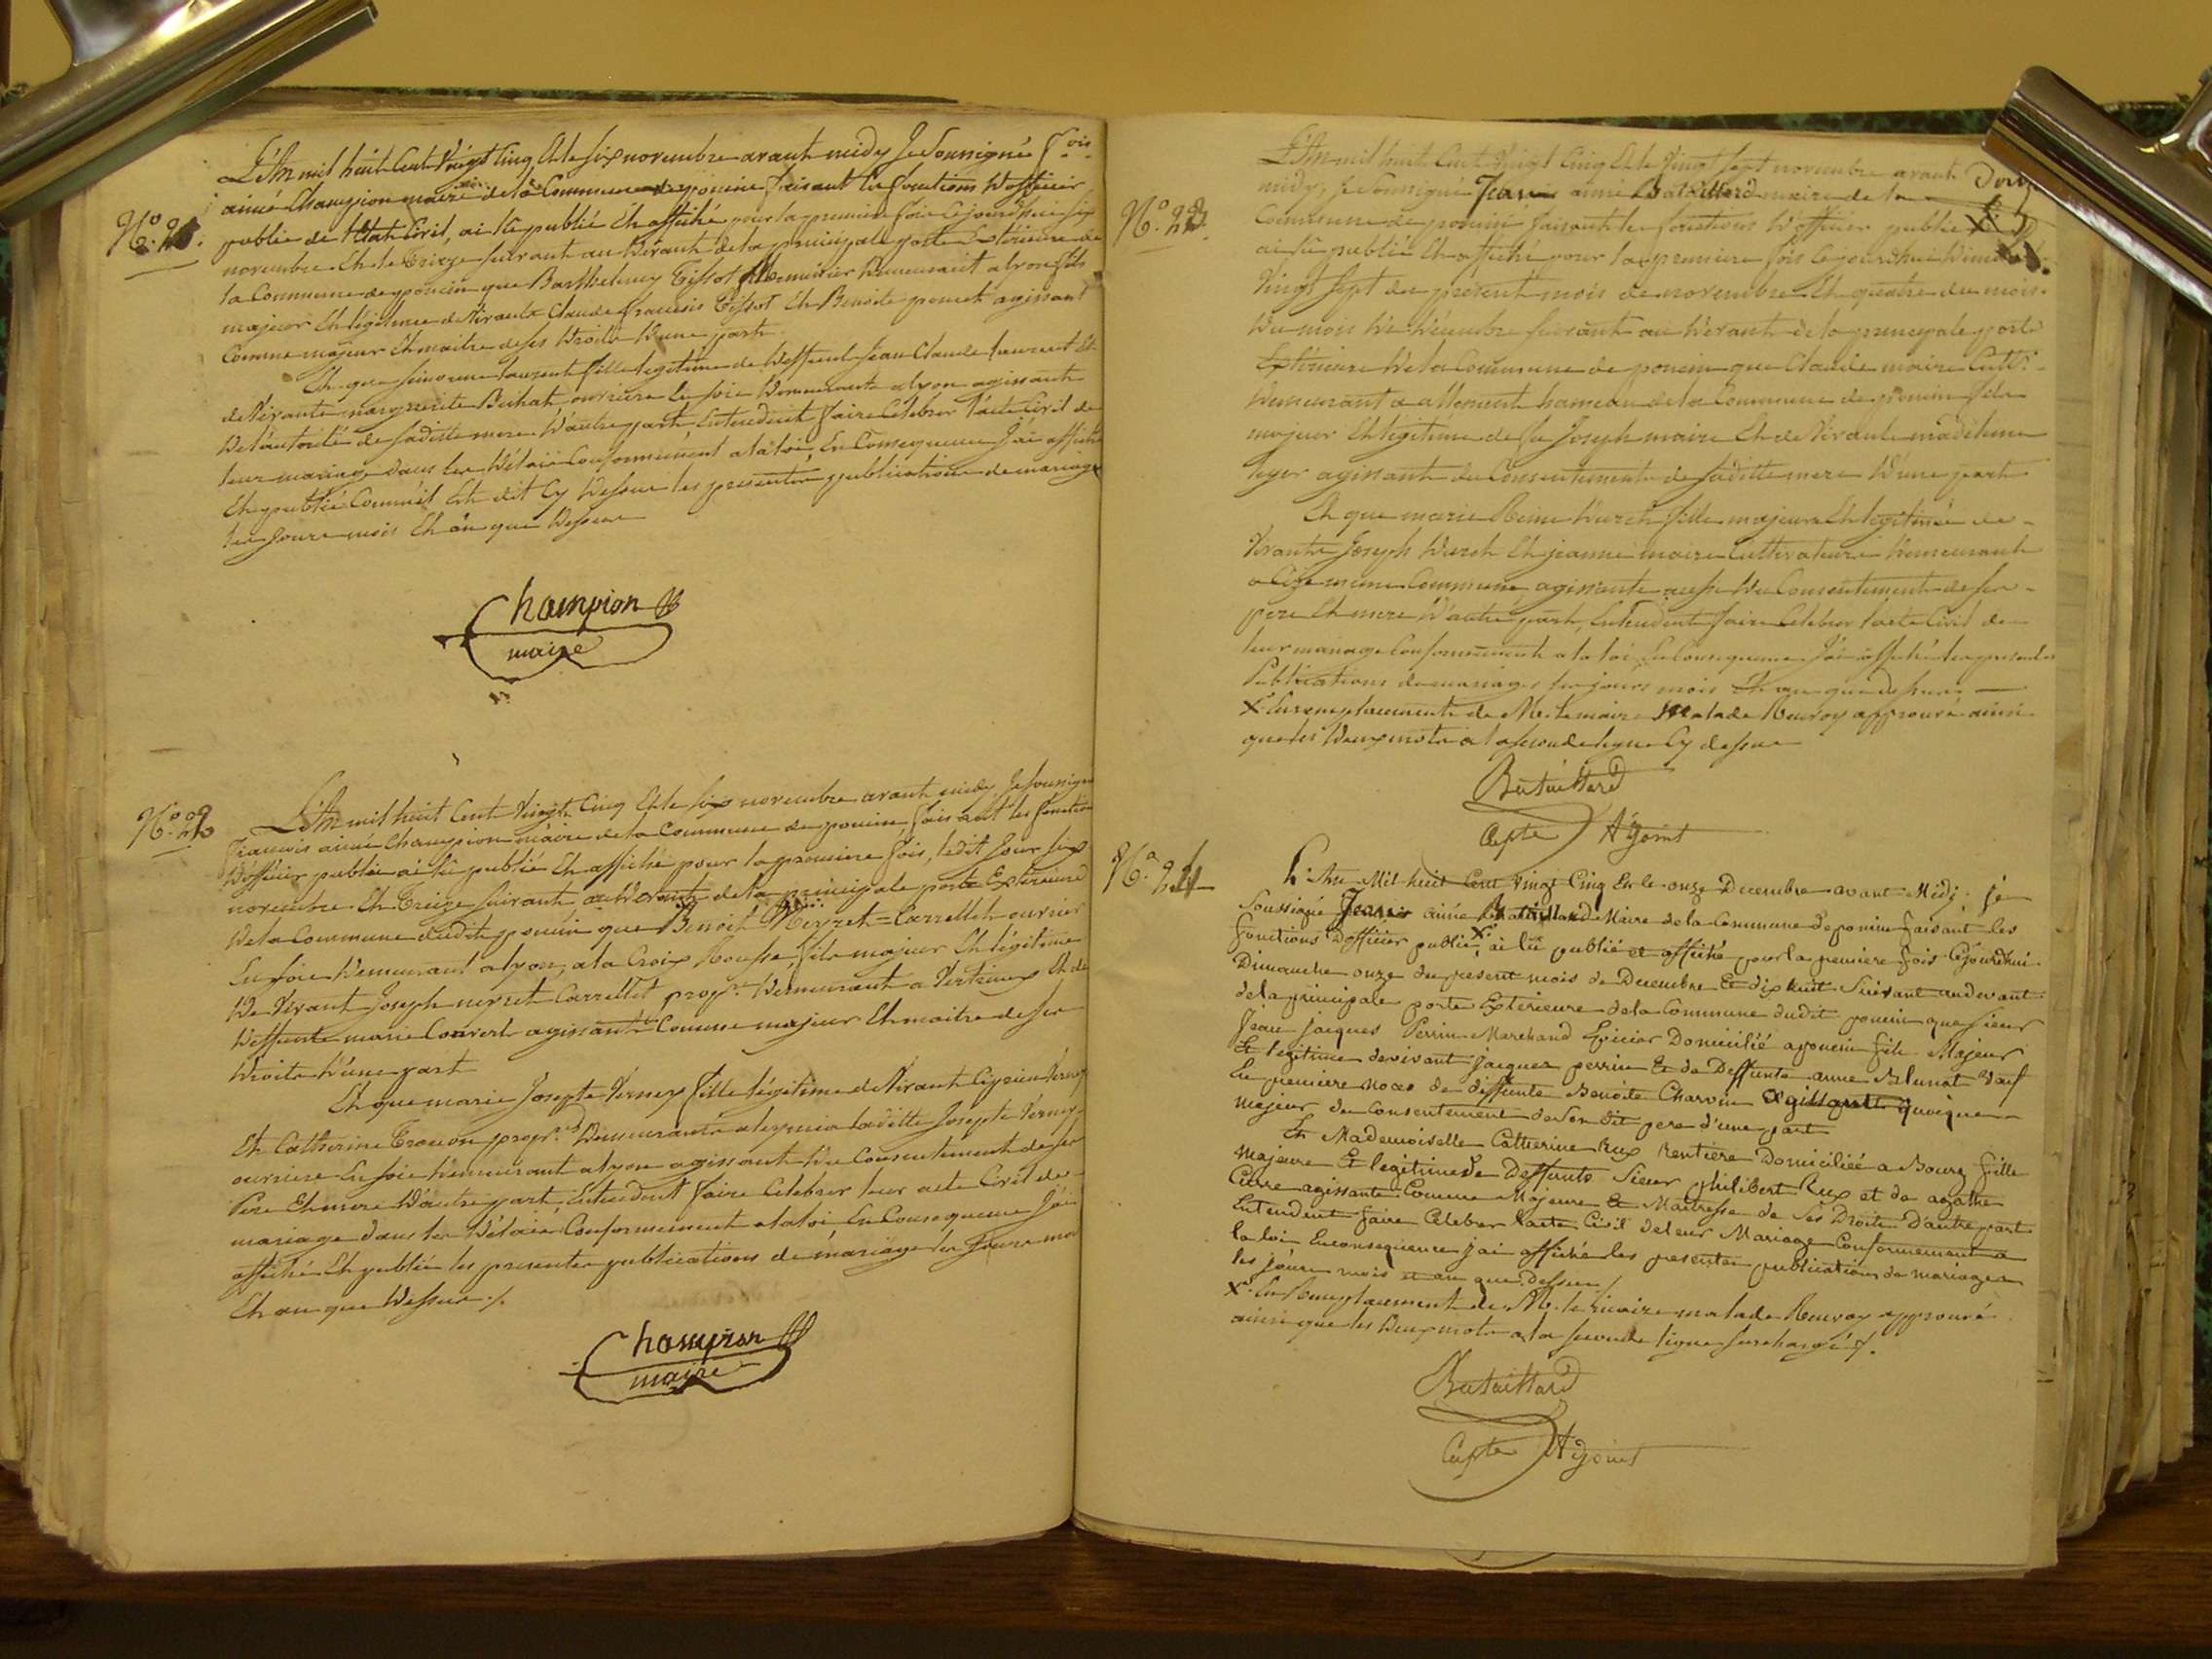 L'An mil huit Cent Vingt Cinq Et le six novembre avant midy Je Soussigné fois
aimé Champion maire de la Commune de poncin faisant les fonctions D'officier
N.o 21.
public de l'Etat Civil, ai lû publié Et affiché pour la premiere fois Cejourd'hui six
novembre Et le treize suivant au Devant de la principale porte Exterieure de
la Commune de poncin que Barthelemy Tissot Menuisier Demeurant a lyon fils
majeur Et légitime de Vivants Claude francois Tissot Et Benoite poncet agissant
Comme majeur Et maitre de ses Droits D'une part.
Et que laurent fille legitime de Deffunt Jean Claude laurent Et
de Vivante marguerite Buchat ouvriere En soie Demeurante a lyon agissante
De l'autorité de sadite mere D'autre part Entendent faire Celebrer l'acte Civil de
leur mariage dans les Délais Conformément a la loi, En Consequence J'ai affiché
Et publié Comme il Est dit Cy Dessus les presentes publications de mariage
les Jours mois Et an que Dessus
Champion
maire
N.o 22
L'An mil huit Cent Vingt Cinq Et le six novembre avant midy, Je soussigné
francois aimé Champion maire de la Commune de poncin faisant les fonctions
D'officier public ai lû publié Et affiché pour la premiere fois, ledit Jour six
novembre Et Treize suivant au Devant de la principale porte Exterieure
De la Commune dudit poncin que Benoit Neyret=Carrellet ouvrier
En soie Demeurant a lyon, a la Croix Rousse, fils majeur Et légitime
De Vivant Joseph neyret Carrellet prop.re Demeurant a Vertrieux Et de
Deffunte marie Couvert agissant Comme majeur Et maitre de ses
Droits D'une part
Et que marie Josepte Verney fille légitime de Vivants Verney
Et Catherine prop.res Demeurants a leymia ladite Josepte Verney
ouvriere En soie Demeurant a lyon agissant Du Consentement de ses
Pere Et mere D'autre part, Entendent faire Celebrer leur acte Civil de
mariage dans les Délais Conformement a la loi En Consequence J'ai
affiché Et publié les presentes publications de mariage les Jours mois
Et an que Dessus ./.
Champion
maire
L'An mil huit Cent Vingt Cinq Et le Vingt Sept novembre avant
midy, Je Soussigné Jean aimé Bataillard maire de la
N.o 23.
Commune de poncin faisant les fonctions D'officier public X
ai lû publié Et affiché pour la premiere fois Cejourd'hui Dimanche
Vingt Sept du présent mois de novembre Et quatre du mois
Du mois De Décembre suivant au Devant de la principale porte
Extérieure De la Commune de poncin que Claude maire Cult.r
Demeurant a allement hameau de la Commune de poncin fils
majeur Et légitime de feu Joseph maire Et de Vivante madelaine
leger agissant du Consentement de sadite mere D'une part
Et que marie Reine Durch fille majeure Et légitime de
Vivants Joseph Durch Et jeanne maire Cultivateurs Demeurants
a Cize meme Commune agissante aussi Du Consentement de ses
pere Et mere D'autre part, Entendent faire Celebrer l'acte Civil de
leur mariage Conformément a la loi En Consequence J'ai affiché les presentes
Publications de mariages les jours mois Et an que dessus —
X En remplacement de Mr. le maire Malade Renvoy approuvé ainsi
que les Deux mots a la seconde ligne Cy dessus
Bataillard
Adjoint
N.o 24
L'An Mil huit Cent vingt Cinq Et le onze Decembre avant Midy, je
Soussigné Jean aimé Bataillard Maire de la Commune de poncin faisant les
fonctions D'officier public X ai lû publié et affiché pour la premiere fois Cejourd'hui
Dimanche onze du present mois de Decembre Et dix huit Suivant au devant
de la principale porte Exterieure de la Commune dudit poncin que Sieur
Jean jacques Perrin Marchand Epicier Domicilié a poncin fils Majeur
Et legitime de vivant jacques perrin Et de Deffunte anne Blunat Veuf
En premiere noces de deffunte Benoite Charvin Agissante quoique
Majeur du Consentement de Son dit pere d'une part
Et Mademoiselle Catherine Rux Rentiere Domiciliée a Bourg fille
Majeure Et legitime De Deffunts Sieur philibert Rux et de agathe
Cierre agissante Comme Majeure Et Maitresse de Ses Droits D'autre part
Entendent faire Celebrer l'acte Civil de leur Mariage Conformement a
la loi En consequence j'ai affiché les presentes publications de mariages
les jours mois et an que Dessus /.
X En Remplacement de Mr. le maire malade Renvoy approuvé
ainsi que les Deux mots a la seconde ligne surchargés /.
Bataillard
Adjoint